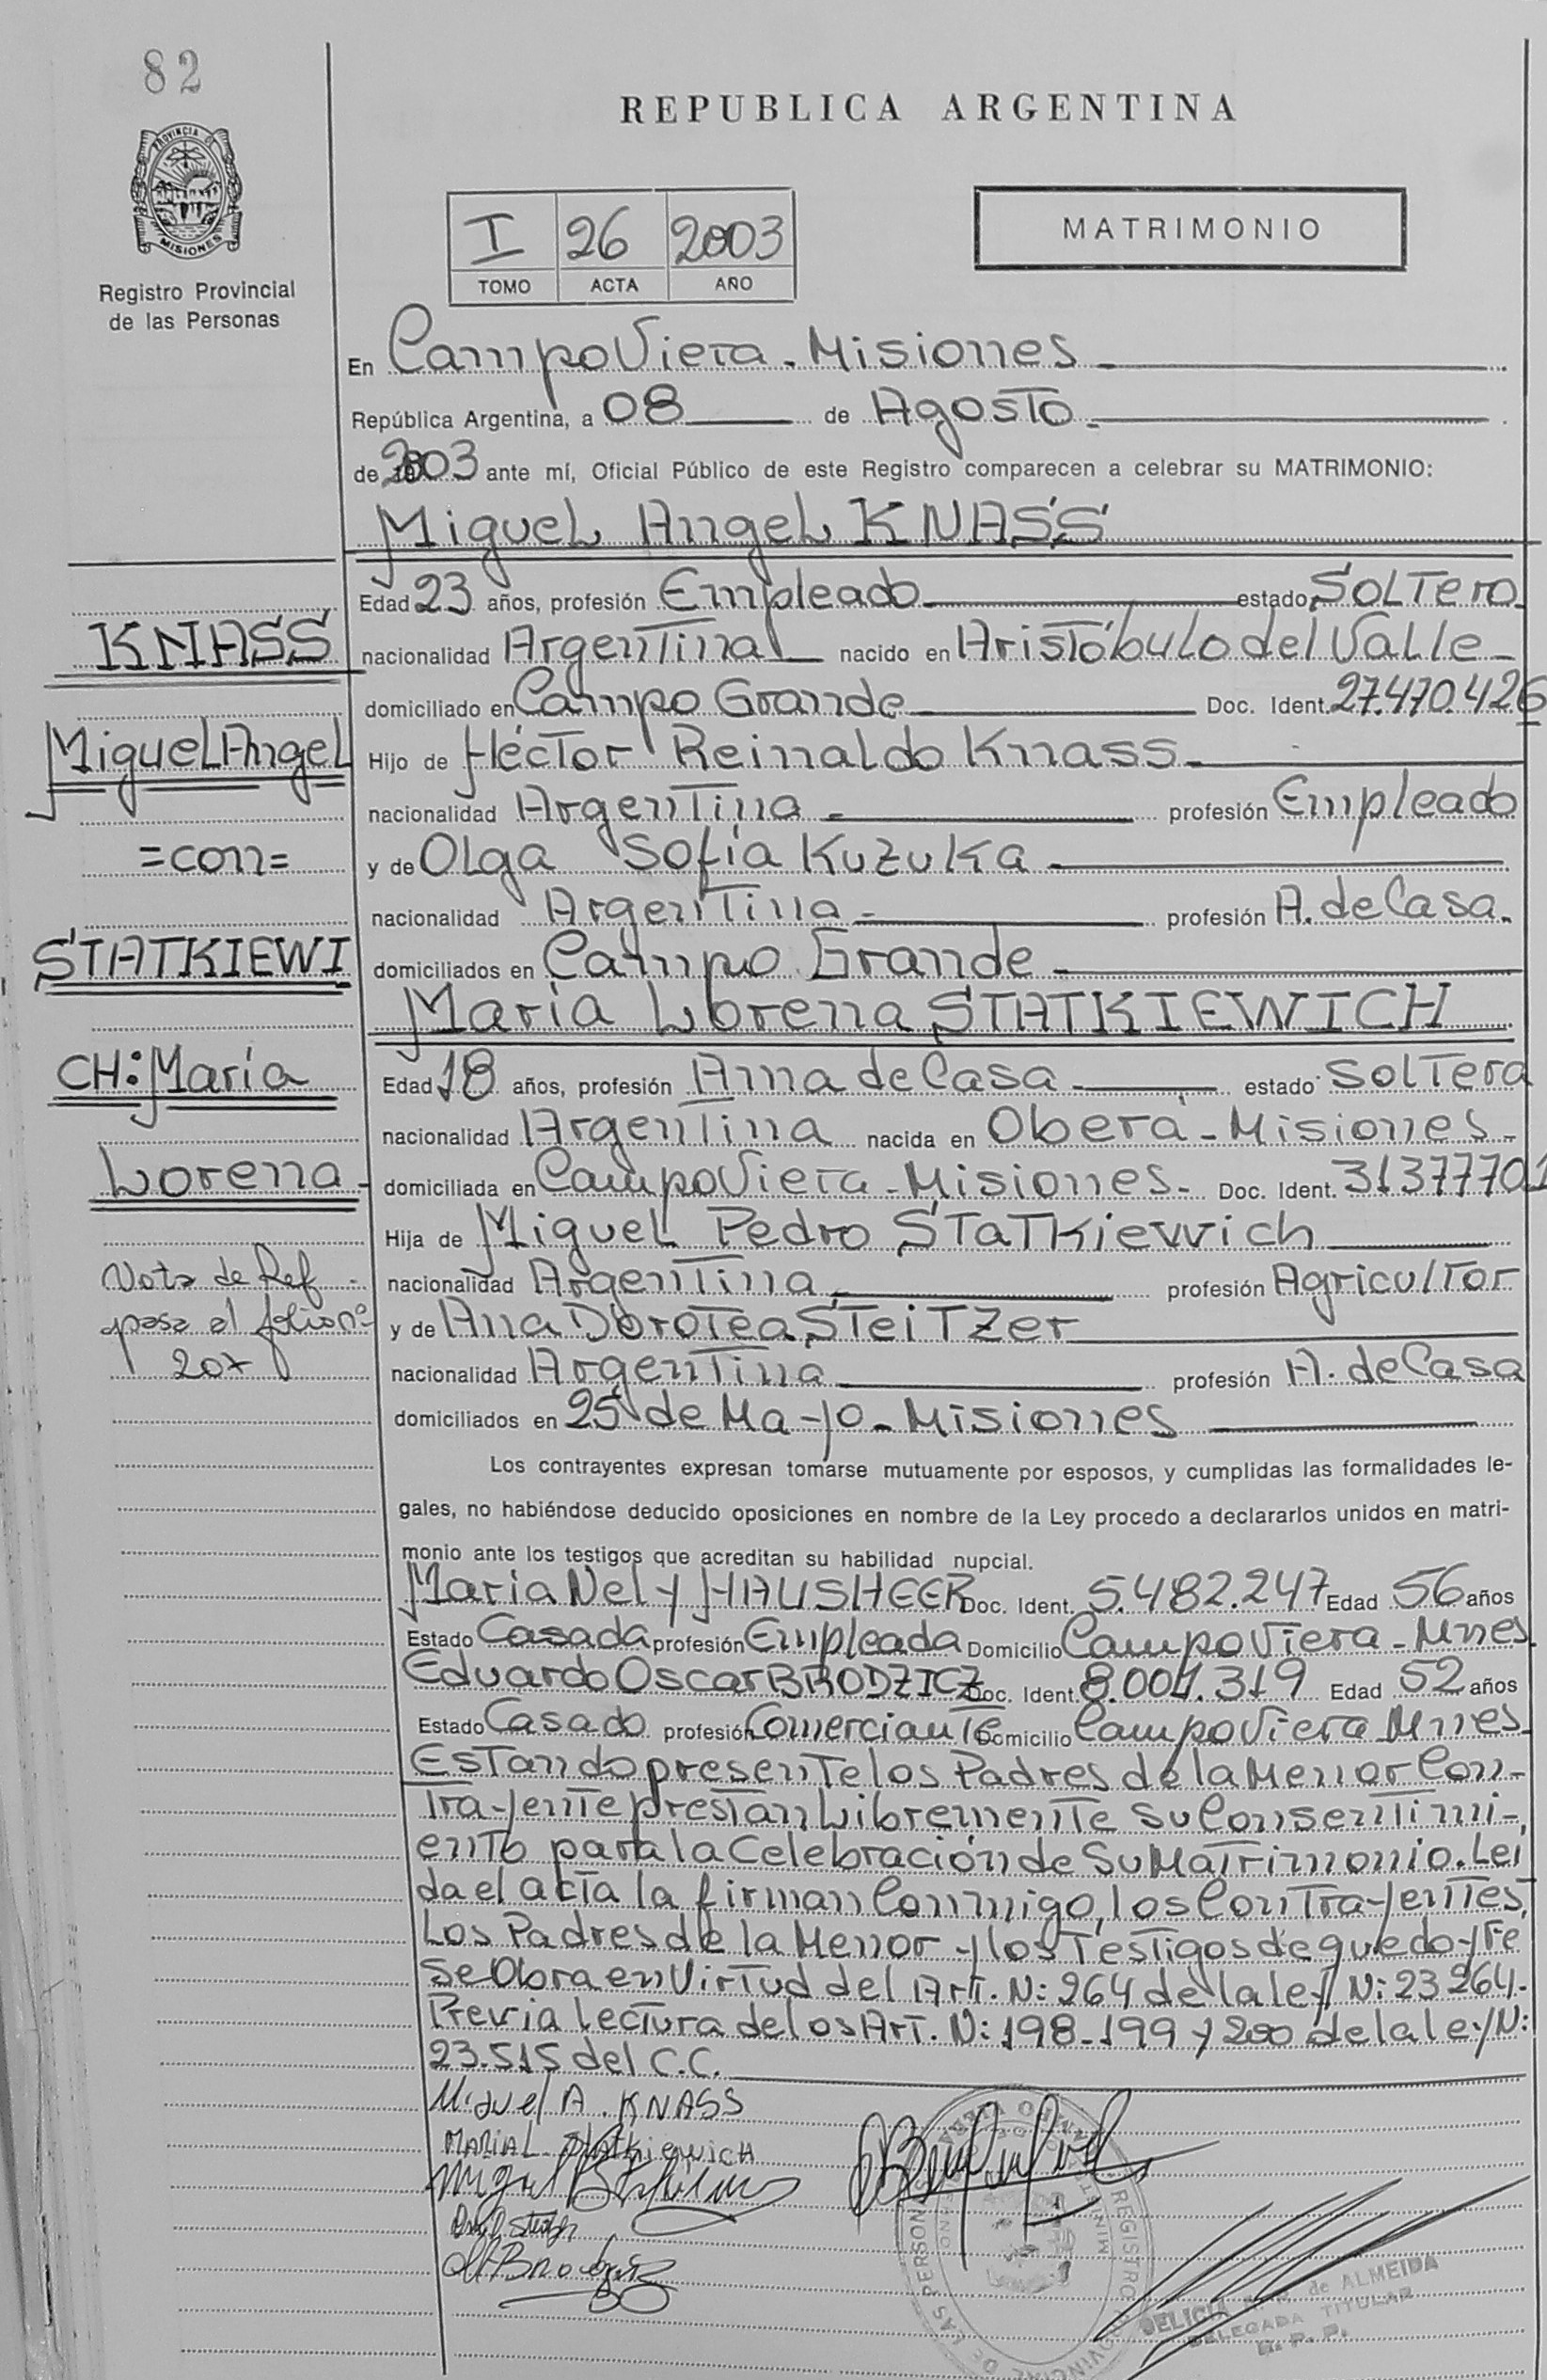 82
REPUBLICA ARGENTINA
PROVINCIA DE
MISIONES
Registro Provincial
de las Personas
I 26 2003
TOMO ACTA AÑO
MATRIMONIO
En Campo Viera - Misiones
República Argentina, a 08 de Agosto
de 2003 ante mí, Oficial Público de este Registro comparecen a celebrar su MATRIMONIO:
Miguel Angel KNASS
Edad 23 años, profesión Empleado estado Soltero
KNASS
nacionalidad Argentina nacido en Aristóbulo del Valle
domiciliado en Campo Grande Doc. Ident. 27.470.426
Miguel Angel
Hijo de Héctor Reinaldo Knass
nacionalidad Argentina profesión Empleado
=con=
y de Olga Sofía Kuzuka
nacionalidad Argentina profesión A. de Casa
STATKIEWI
domiciliados en Campo Grande
María Lorena STATKIEWICH
CH: María
Edad 18 años, profesión Ama de Casa estado Soltera
nacionalidad Argentina nacida en Oberá - Misiones
Lorena
domiciliada en Campo Viera - Misiones - Doc. Ident. 31377701
Hija de Miguel Pedro Statkiewich
Nota de Ref
nacionalidad Argentina profesión Agricultor
pasa al folio nº
y de Ana Dorotea Steitzer
207
nacionalidad Argentina profesión A. de Casa
domiciliados en 25 de Mayo - Misiones
Los contrayentes expresan tomarse mutuamente por esposos, y cumplidas las formalidades le-
gales, no habiéndose deducido oposiciones en nombre de la Ley procedo a declararlos unidos en matri-
monio ante los testigos que acreditan su habilidad nupcial.
Maria Nely HAUSHEER Doc. Ident. 5.482.247 Edad 56 años
Estado Casada profesión Empleada Domicilio Campo Viera - Mnes
Eduardo Oscar BRODZICZ Doc. Ident. 8.001.319 Edad 52 años
Estado Casado profesión Comerciante Domicilio Campo Viera Mnes
Estando presente los Padres de la Menor Con-
trayente prestan libremente su consentimi-
ento para la Celebración de Su Matrimonio. Leí
da el acta la firman Conmigo, los Contrayentes,
Los Padres de la Menor y los Testigos de que doy Fe
Se Obra en Virtud del Art. N: 264 de la ley N: 23264.
Previa lectura de los Art. N: 198-199 y 200 de la ley N:
23.515 del C.C.
Miguel A. KNASS
MARIA L. Statkiewich
REGISTRO PROVINCIAL DE LAS PERSONAS
DELICIA de ALMEIDA
DELEGADA TITULAR
R. P. P.